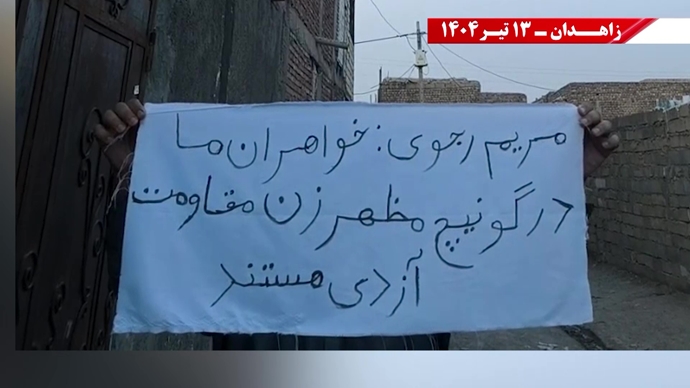 زاهـدان ـ ۱۳ تیـر ۱۴۰۴
مریم رجوی: خواهران ما
در گونیچ مظهر زن مقاومت
آزدی هستند